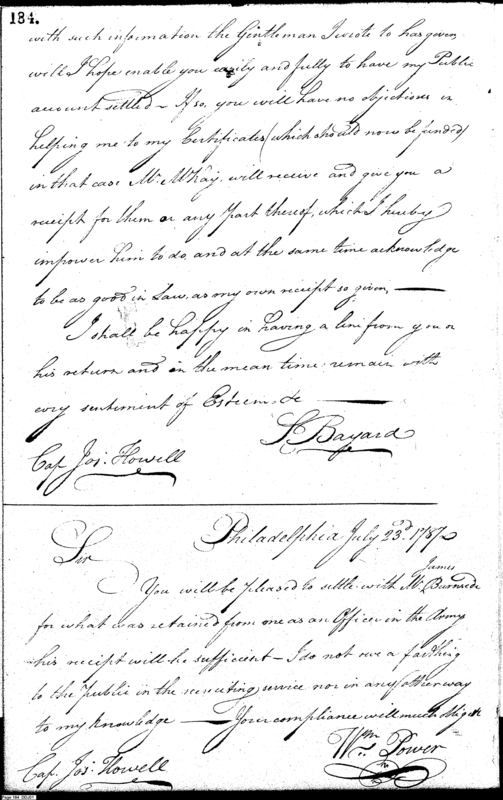 184.
with such information the Gentleman I wrote to has given
will I hope enable you easily and fully to have my Public
account settled – If so, you will have no objections in
helping me to my Certificates (which should now be funded)
in that case Mr. McKay will receive and give you a
receipt for them or any part thereof, which I hereby
impower him to do, and at the same time acknowledge
to be as good in Law, as my own receipt so given, —
I shall be happy in having a line from you on
his return and in the mean time remain with
every sentiment of Esteem &c —
St. Bayard
Cap. Jos: Howell
Philadelphia July 23d. 1787
Sir
James
You will be pleased to settle with Mr. Burnside
for what was retained from me as an Officer in the Army
his receipt will be sufficient – I do not owe a farthing
to the public in the recruiting service nor in any other way
to my knowledge — Your compliance will much oblige
Wm. Power
Cap. Jos: Howell